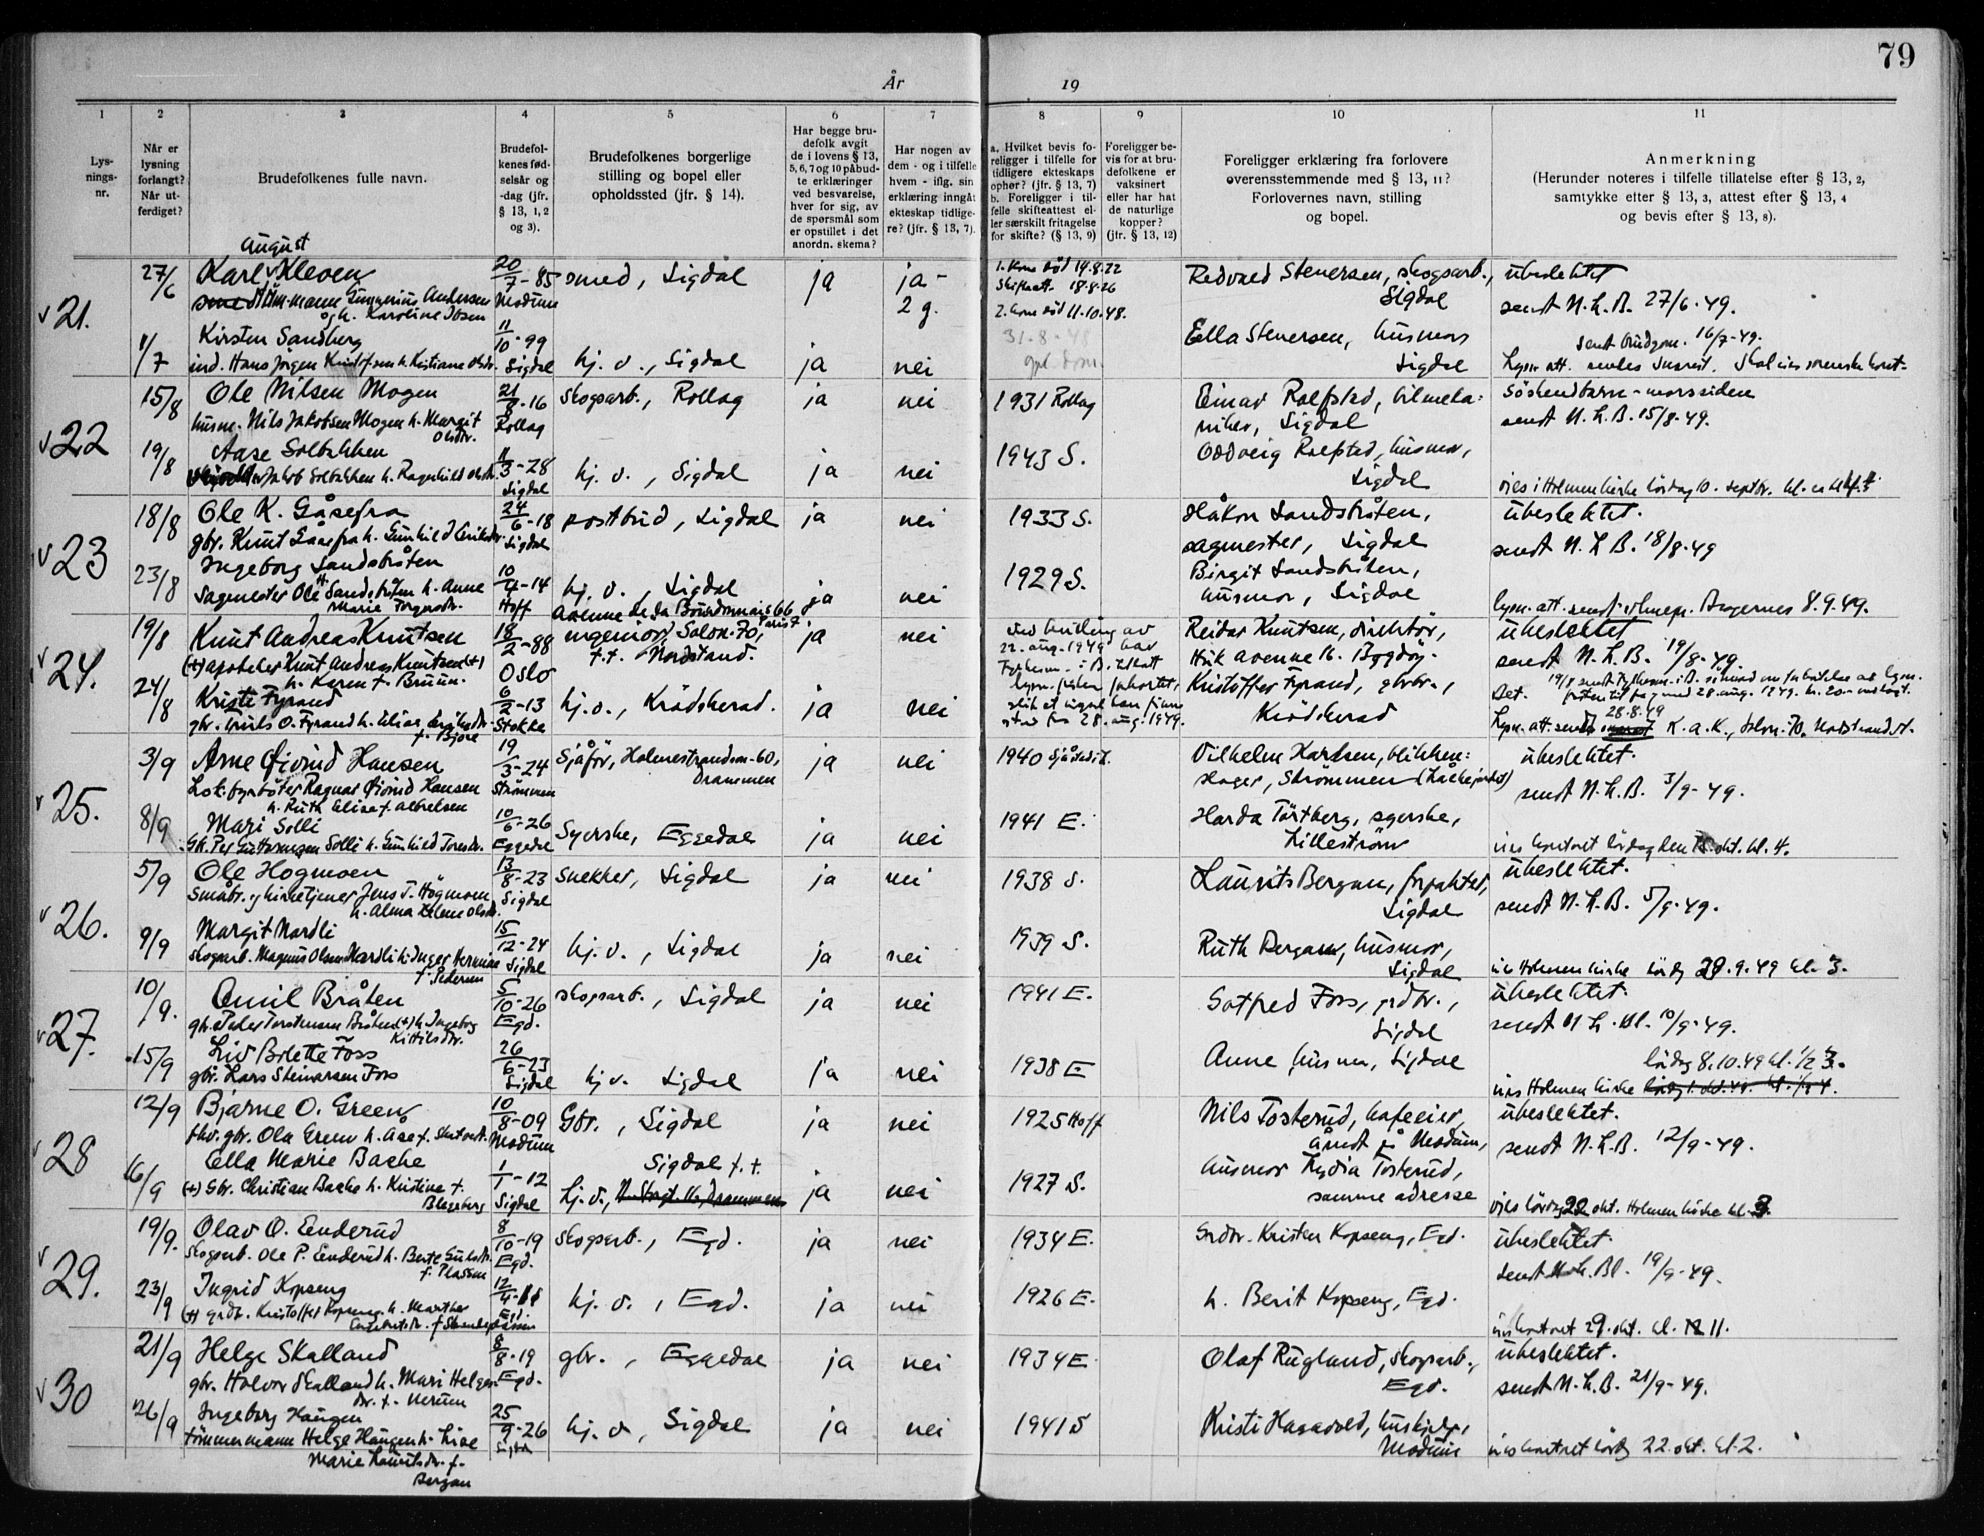 79
År
19
1
2
3
4
5
6
7
8
9
10
11
Lys-
nings-
nr.
Når er
lysning
forlangt?
Når ut-
ferdiget?
Brudefolkenes fulle navn.
Brudefol-
kenes fød-
selsår og
-dag (jfr.
§ 13, 1, 2
og 3).
Brudefolkenes borgerlige
stilling og bopel eller
opholdssted (jfr. § 14).
Har begge bru-
defolk avgit
de i lovens § 13,
5, 6, 7 og 10 påbud-
te erklæringer
ved besvarelse,
hver for sig, av
de spørsmål som
er opstillet i det
anordn. skema?
Har nogen av
dem - og i tilfelle
hvem - iflg. sin
erklæring inngåt
ekteskap tidlige-
re? (jfr. § 13, 7).
a. Hvilket bevis fo-
religger i tilfelle for
tidligere ekteskaps
ophør? (jfr. § 13, 7)
b. Foreligger i til-
felle skifteattest el-
ler særskilt fritagelse
for skifte? (§ 13, 9)
Foreligger be-
vis for at bru-
defolkene er
vaksinert
eller har hat
de naturlige
kopper?
(jfr. § 13, 12)
Foreligger erklæring fra forlovere
overensstemmende med § 13, 11?
Forlovernes navn, stilling
og bopel.
Anmerkning
(Herunder noteres i tilfelle tillatelse efter § 13, 2,
samtykke efter § 13, 3, attest efter § 13, 4
og bevis efter § 13, 8).
v 21.
27/6
August
Karl Kleven
Gunnerius Andersen
og h. Karoline Ibsen
20/7-85
Modum
smed, Sigdal
ja
ja -
2 g.
1. kone død 14.8.22
Skifteatt. 18.8.26
2. kone død 11.10.48.
31.8.48
Redvald Stenersen, skogsarb.,
Sigdal
ubeslektet
sendt N.L.B. 27/6-49.
1/7
Kirsten Sandberg
ind. Hans Jörgen Kristofsen h. Kristiane Olsdr.
11/10-99
Sigdal
hj. v., Sigdal
ja
nei
Ella Stenersen, husmor
Sigdal
sendt brudgom. 16/7-49.
v 22
15/8
Ole Nilsen Mogen
husm. Nils Jakobsen Mogen h. Margit
Olsdtr.
21/8-16
Rollag
Skogsarb., Rollag
ja
nei
1931 Rollag
Einar Rolfstad, bilmeka-
niker, Sigdal
Söskendbarn - morssiden
sendt N.L.B. 15/8-49.
19/8
Aase Solbakken
Jakob Solbakken h. Ragnhild Olsdtr.
11/3-28
Sigdal
hj. v., Sigdal
ja
nei
1943 S.
Oddveig Rolfstad, husmor,
Sigdal
vies i Holmen kirke lördag 10. septbr.
v 23
18/8
Ole K. Gåsefra
gbr. Knut Gåsefra h. Gunhild Eriksdtr.
24/6-18
Sigdal
postbud, Sigdal
ja
nei
1933 S.
Håkon Sandsbråten,
sagmester, Sigdal
ubeslektet.
sendt N.L.B. 18/8-49
23/8
Ingeborg Sandsbråten
Sagmester Ole H. Sandsbråten h. Anne
Marie Torgersdtr.
10/4-14
Hoff
hj. v., Sigdal
ja
nei
1929 S.
Birgit Sandsbråten,
husmor, Sigdal
8.9.49.
v 24.
19/8
Knut Andreas Knutsen
(+) apoteker Knut Andreas Knutsen (+)
h. Karen f. Bruun.
18/2-88
Oslo
ingeniør, Solvn. 70,
f.t. Nordstrand.
ja
nei
22. aug. 1949 har
28. aug. 1949.
Reidar Knutsen, direktör,
Huk avenue 16. Bygdöy.
ubeslektet
sendt N.L.B. 19/8-49.
24/8
Kriste Fyrand
gbr. Truls O. Fyrand h. Eline Eriksdtr.
f. Björe
6/2-13
Stokke
hj.v., Krödsherad.
ja
nei
Kristoffer Fyrand, gbrbr.,
Krödsherad
28.8.49
v 25.
3/9
Arne Øivind Hansen
Lok. fyrböter Ragnar Øivind Hansen
h. Ruth Elise f. Albretsen
19/3-24
Strömmen
Sjåför, Holmestrandsvn. 60,
Drammen
ja
nei
Vilhelm Karlsen, blikken-
slager, Strömmen
ubeslektet.
sendt N.L.B. 3/9-49.
8/9
Mari Solli
h. Gunhild Toresdtr.
10/6-26
Eggedal
Syerske, Eggedal
ja
nei
1941 E.
Harda Törtberg, syerske,
Lilleström
vies kontoret lördag den okt. kl. 4.
v 26.
5/9
Ole Hogmoen
Småbr. og kirketjener Jens T. Högmoen
h. Alma Helene Olsdtr.
13/8-23
Sigdal
snekker, Sigdal
ja
nei
1938 S.
Laurits Bergan, forpakter,
Sigdal
ubeslektet.
sendt N.L.B. 5/9-49.
9/9
Margit Nardli
Skogsarb. Magnus Olsen Nardli h. Inger Hermine
f. Pedersen
15/12-24
Sigdal
hj.v., Sigdal
ja
nei
1939 S.
Ruth Bergan, husmor,
Sigdal
vies Holmen kirke lördag 29.9.49 kl. 3.
v 27.
10/9.
Emil Bråten
gbr. Peder Torstensen Bråten (+) h. Ingeborg
Kittilsdtr.
5/10-26
Egd.
skogsarb., Sigdal
ja
nei
1941 E.
Gotfred Foss, grdbr.,
Sigdal
ubeslektet.
sendt N.L.Bl. 10/9-49.
15/9
Liv Bolette Foss
gbr. Lars Steinarsen Foss
26/6-23
Sigdal
hj v. Sigdal
ja
nei
1938 E
Anne husmor, Sigdal
lördag 8.10.49 kl. 1/2 3.
vies Holmen kirke
28
12/9
Bjarne O. Green
fhv. gbr. Ola Green h. Åse f. Skatvedt.
10/8-09
Modum
Gbr., Sigdal
ja
nei
1925 Hoff
Nils Tosterud, kafeeier,
Åmot på Modum,
ubeslektet.
sendt N.L.B. 12/9-49.
16/9
Ella Marie Bache
(+) Gbr. Christian Bache h. Kristine f.
Blegeberg
1/1-12
Sigdal
Sigdal f.t.
hj.v.,
ja
nei
1927 S.
husmor Lydia Tosterud,
samme adresse
vies lördag 22 okt. Holmen kirke kl. 3.
v 29.
19/9.
Olav O. Enderud
Skogsarb. Ole P. Enderud h. Berte Gulsdtr.
f. Plassen
8/10-19
Egd.
Skogsarb., Egd.
ja
nei
1934 E.
Grdbr. Kristen Kopseng, Egd.
ubeslektet.
sendt N.L.Bl. 19/9-49.
23/9
Ingrid Kopseng
(+) grdbr. Kristoffer Kopseng h. Marthe
Egd.
hj. v., Egd.
ja
nei
1926 E.
h. Berit Kopseng, Egd.
vies kontoret 29. okt. kl. 11.
v 30
21/9
Helge Skalland
gbr. Halvor Skalland h. Mari Helges-
dr. f. Nerum
8/8-19
Egd.
gbr., Eggedal
ja
nei
1934 E
Olaf Rugland, skogsarb.,
Egd.
ubeslektet.
sendt N.L.B. 21/9-49.
26/9
Ingeborg Haugen
tömmermann Helge Haugen h. Lise
Marie Lauritsdr. f.
Bergan
25/9-26
Sigdal
hj. v., Sigdal
ja
nei
1941 S
Kristi Haavold, hushjelp,
Modum
vies kontoret lördag 22. okt. kl. 2.